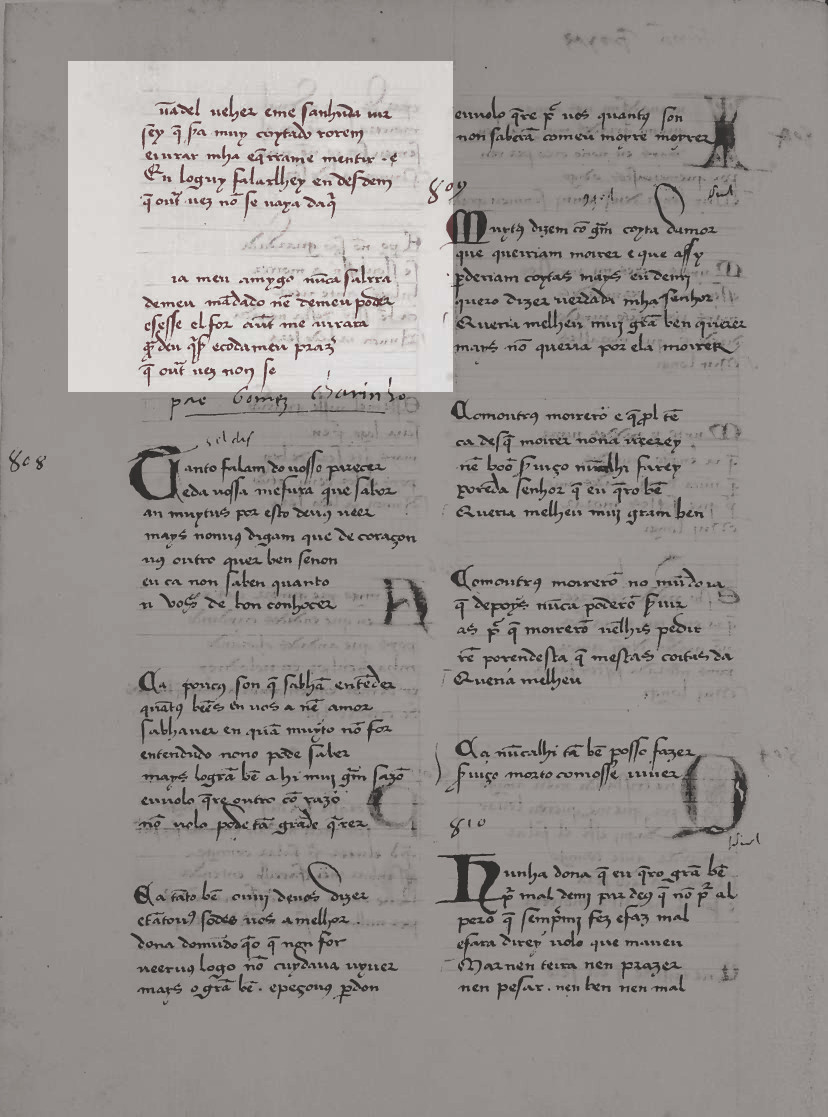 ũadel ueher eme sanhuda uir
sey q̃ s̃a muy coytado torem
eiurar mha eq̃rrame mentir . e
En loguy falarlhey en desdem
q̃ out̃ uez nõ se uaxa daq̃
ia meu amygo nũca salrra
demeu mãdado nẽ demeu poder
esesse el for aũt me uirata
q̃ deu
q̃ out̃ uez non se
pae Gomez Charinho
808
sel dal
Tanto falam do uosso parecer
e da uossa mesura que sabor
an muytus por esto deuꝯ ueer
mays nonuꝯ digam que de coraçon
uꝯ outro quer ben senon
eu ca non saben quanto
u uoss̃ de bon conhocer
Ca poucꝯ son q̃ sabhã entẽder
quãtꝯ beẽs en uos a nẽ amor
sabhauer en quã muyto nõ for
entendudo nono pode saber
mays logrã bẽ a hi muj grm̃ sazõ
euuolo q̃re outro cõ razõ
nõ uolo pode tã grãde q̃rer
Ca tãto bẽ ouuj deuos dizer
etãtouꝯ sodes uos a melhor .
dona domũdo q̃o q̃ non for
ueeruꝯ logo nõ cuydaua uyuer
mays o grã bẽ . epeçouꝯ p̃don
euuolo q̃re pr̃ uos quantꝯ son
non saberã comeu moyre morrer
809
Muytꝯ dizem cõ grm̃ coyta damor
que queiriam moirer e que assy
p̃deriam coytas mays eu demi
quero dizer uerdada mha senhor
Queria melheu muj grã ben querer
mays nõ queria por ela moirer
Comoutrꝯ moirerõ e q̃ prol tẽ
ca desq̃ moirer nona ueerey
nẽ boõ s̃uiço nũcalhi farey
poreda senhor q̃ eu q̃ro bẽ
Queria melheu muj gram ben
Comoutrꝯ moirerõ no mũdo ia
q̃ depoys nũca poderõ s̃uir
as pr̃ q̃ moirerõ nẽlhis pedir
rẽ porendesta q̃ mestas coitas da
Queria melheu
Ca nũcalhi tã bẽ posso fazer
s̃uiço morto comosse uiuer
810
Hunha dona q̃ eu q̃ro grã bẽ
pr̃ mal demi par deꝯ q̃ nõ pr̃ al
pero q̃ sempr̃mi fez efaz mal
efara direy uolo que maueu
Mar nen teira nen prazer
nen pesar . nen ben nen mal